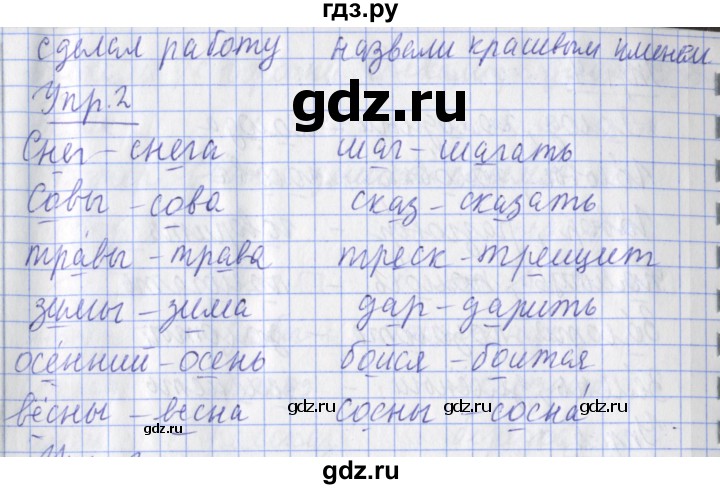 гдз.ру
сделал работу назвали красивым именем
Упр. 2
gdz.ru
Снег - снега шаг - шагать
Совы - сова сказ - сказать
травы - трава треск - трещит
зимы - зима дар - дарить
осенний - осень бойся - боится
вёсны - весна сосны - сосна
gdz.ru gdz.ru
gdz.ru